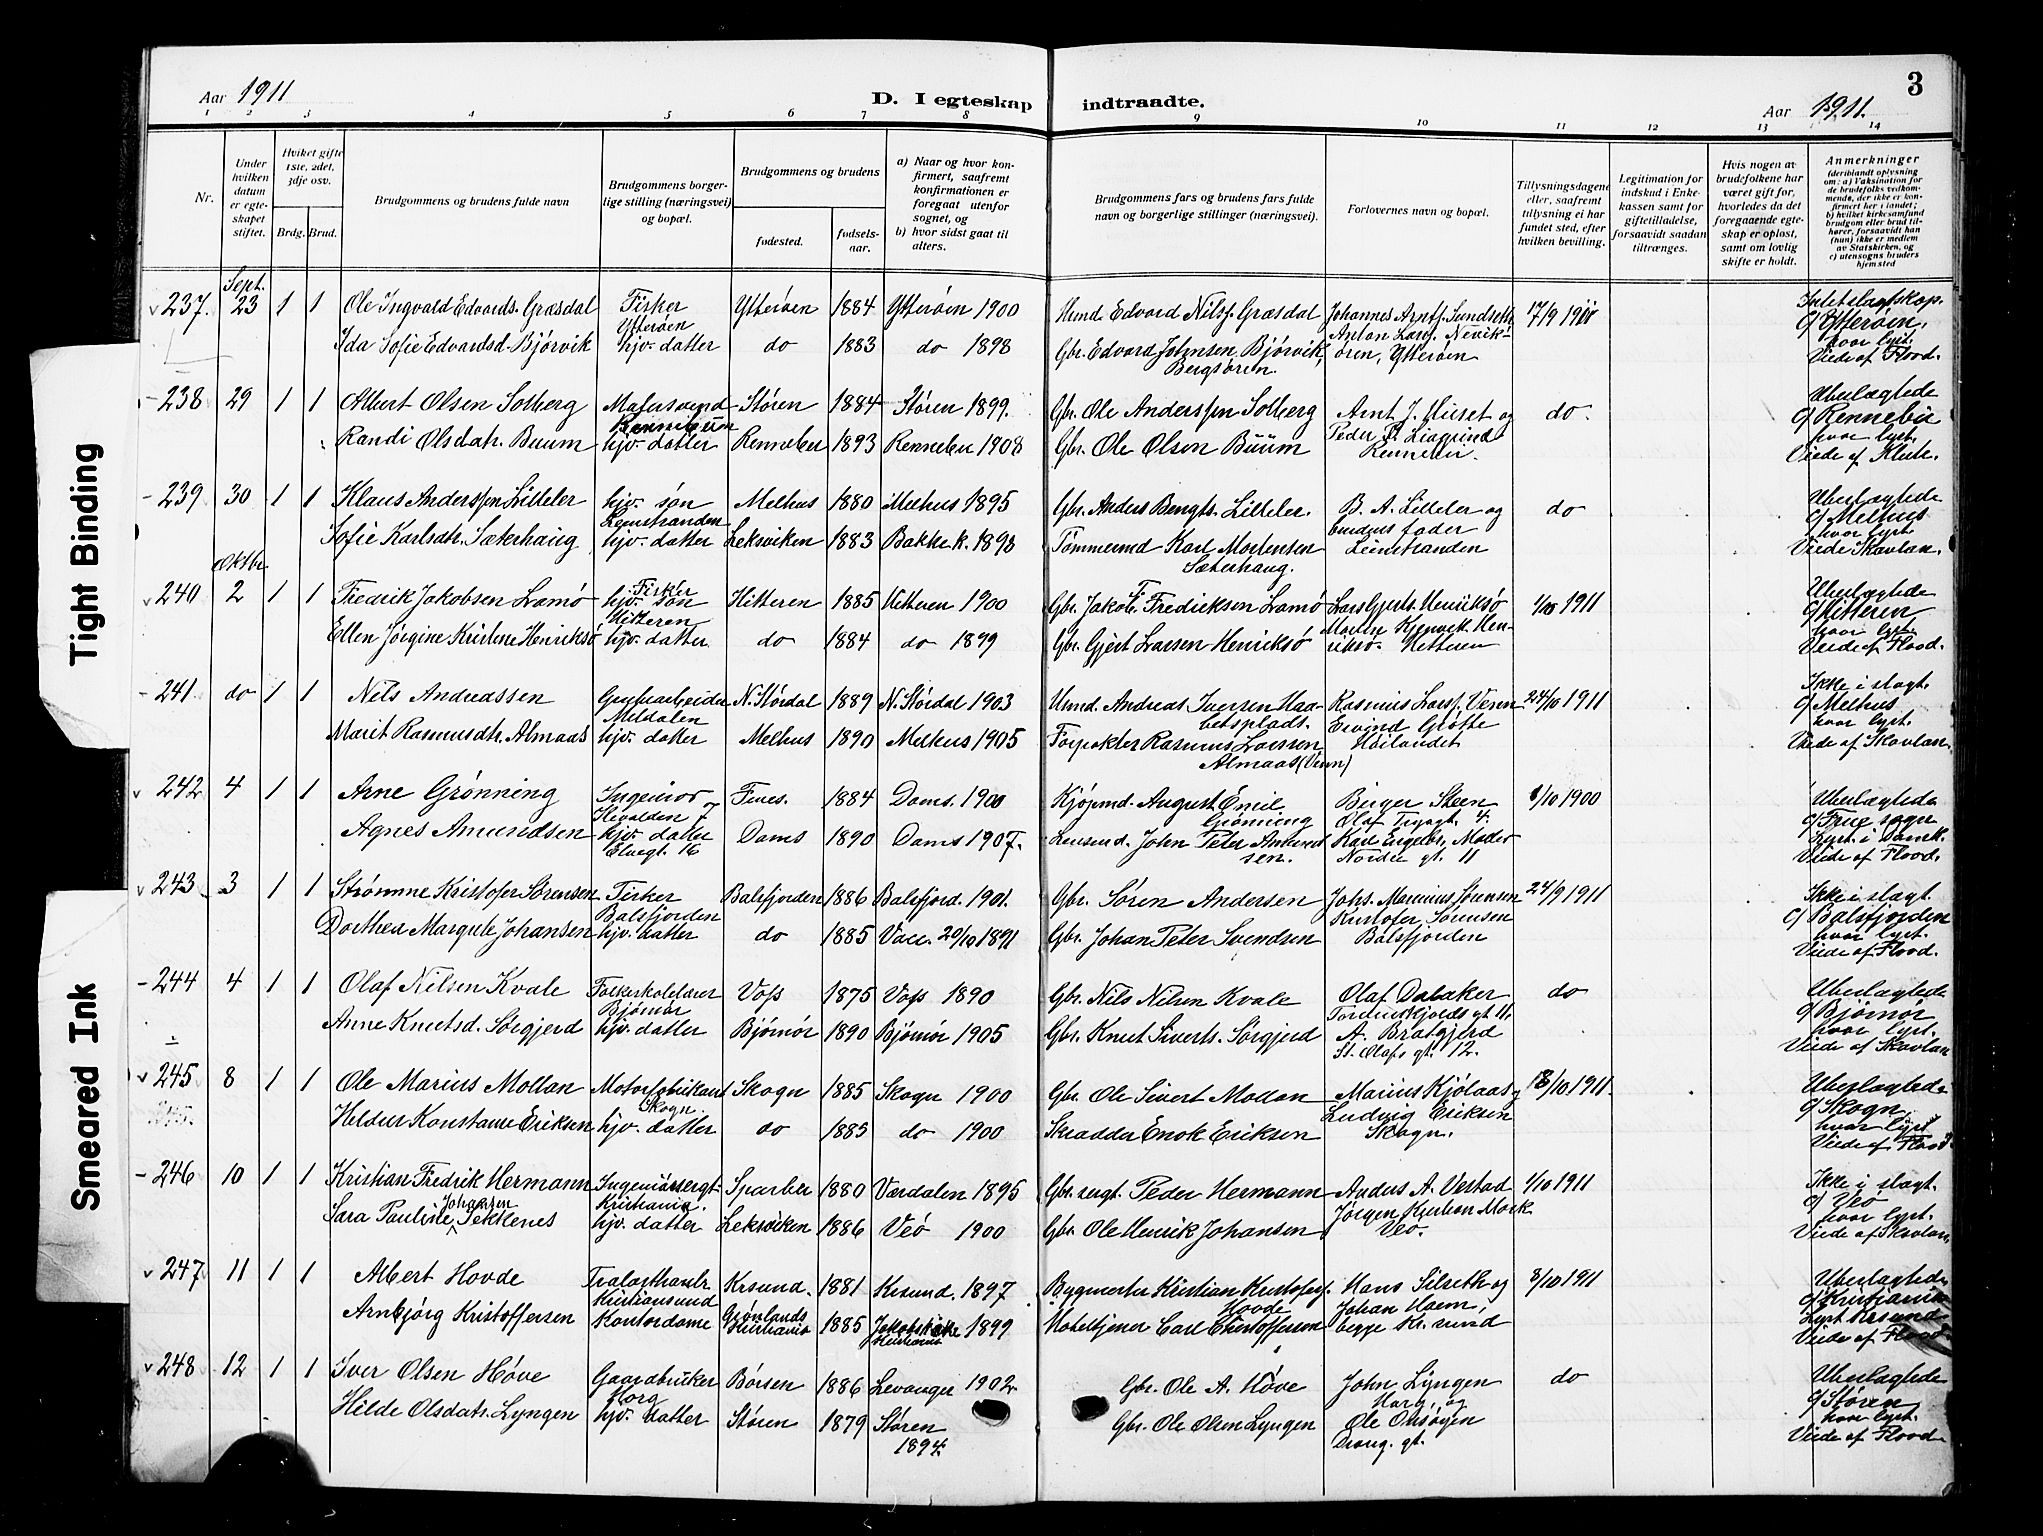 Tight Binding
Smeared Ink
Aar 1911
D. I egteskap indtraadte.
Aar 1911.
3
1 2 3 4 5 6 7 8 9 10 11 12 13 14
Nr.
Under hvilken datum er egteskapet stiftet.
Hviket gifte 1ste, 2det, 3dje osv.
Brdg. Brud.
Brudgommens og brudens fulde navn
Brudgommens borgerlige stilling (næringsvei) og bopæl.
Brudgommens og brudens
fødested.
fødselsaar.
a) Naar og hvor konfirmert, saafremt konfirmationen er foregaat utenfor sognet, og
b) hvor sidst gaat til alters.
Brudgommens fars og brudens fars fulde navn og borgerlige stillinger (næringsvei).
Forlovernes navn og bopæl.
Tillysningsdagene eller, saafremt tillysning ei har fundet sted, efter hvilken bevilling.
Legitimation for indskud i Enkekassen samt for giftetilladelse, forsaavidt saadan tiltrænges.
Hvis nogen av brudefolkene har været gift før, hvorledes da det foregaaende egteskap er opløst, samt om lovlig skifte er holdt.
Anmerkninger (deriblandt oplysning om: a) Vaksination for de brudefolks vedkommende, der ikke er konfirmert her i landet; b) hvilket kirkesamfund brudgom eller brud tilhører, forsaavidt han (hun) ikke er medlem av Statskirken, og c) utensogns bruders hjemsted
Sept.
237. 23 1 1 Ole Ingvald Edvards. Græsdal Fisker Ytterøen 1884 Ytterøen 1900 Hmd Edvard Nilss. Græsdal Johannes Arnts. Sundseth 17/9 1911
Ytterøen Anton Lars. Nevik-
Ida Sofie Edvardsd. Bjørvik hjv. datter do 1883 do 1898 Gbr. Edvard Johnsen Bjørvik, øren, Ytterøen
Bergsøren.
Intet slagtskap.
c/ Ytterøen.
hvor lyst.
Viede af Flood.
238 29 1 1 Albert Olsen Solberg Malersvend Støren 1884 Støren 1899. Gbr. Ole Anderssen Solberg Arnt J. Huset og do.
Randi Olsdatr. Buum hjv. datter Rennebu 1893 Rennebu 1908 Gbr. Ole Olsen Buum Peder P. Rennebu.
Ubeslægtede
c/ Rennebu
hvor lyst.
Viede af Klub.
239 30 1 1 Klaus Anderssen Litleler hjv. søn Melhus 1880 Melhus 1895 Gbr. Anders Bengts. Litleler. B. A. Litleler og do
Leinstranden brudens fader
Sofie Karlsdtr. Sæterhaug hjv. datter Leksviken 1883 Bakke k. 1898 Tømmermd Karl Mortensen Leinstranden
Sæterhaug.
Ubeslægtede
c/ Melhus
hvor lyst.
Viede Skavlan.
Oktbr.
240 2 1 1 Fredrik Jakobsen Lamø Fisker hjv. søn Hitteren 1885 Hitteren 1900 Gbr. Jakob F. Fredriksen Lamø Lars Gjerts. Henriksø 1/10 1911
Hitteren
Ellen Jørgine Kristine Henriksø hjv. datter do 1884 do 1899 Gbr. Gjert Larsen Henriksø Hen-
riksø. Hitteren
Ubeslægtede
c/ Hitteren
hvor lyst.
Viede af Flood.
241 do 1 1 Nils Andreassen Grubearbeider N. Stördal 1889 N. Stördal 1903 Hmd. Andreas Iversen Haa- Rasmus Larss. Venn 24/10 1911
Meldalen betsplads. Eivind Grøtte
Marit Rasmusdtr. Almaas hjv. datter Melhus 1890 Melhus 1905 Forpakter Rasmus Larsen Høilandet
Almaas (Venn)
Ikke i slagt.
c/ Melhus
hvor lyst.
Viede af Skavlan.
242 4 1 1 Arne Grønning Ingeniør Fines. 1884 Doms. 1900 Kjøpmd. August Emil Birger Steen 8/10 1900
Grønning Olaf Trygvt. 4.
Agnes Amundsen hjv. datter Doms 1890 Doms 1907. Lensmd. John Peter Amund- Karl Engebr. Moder
Elvegt. 16 sen. Nordre gt. 11
Ubeslægtede
c/ Frue sogn
Lyst. i Domk.
Viede af Flood.
243 3 1 1 Strømne Kristofer Sørensen Fisker Balsfjorden 1886 Balsfjord. 1901. Gbr. Søren Andersen Johs. Marinius Sørensen 24/9 1911
Balsfjorden Kristofer Sørensen
Dorthea Margrete Johansen hjv. datter do 1885 Vacc. 20/10 1891 Gbr. Johan Peter Svendsen Balsfjorden
Ikke i slagt
c/ Balsfjorden
hvor lyst.
Viede af Flood.
244 4 1 1 Olaf Nilsen Kvale Folkeskolelærer Voss 1875 Voss 1890 Gbr. Nils Nilsen Kvale Olaf Dalaker do
Bjørnør Tordenskjolds gt 11.
Anne Knutsd. Sørgjerd hjv. datter Bjørnør 1890 Bjørnør 1905 Gbr. Knut Siverts. Sørgjerd A. Bratgjerd
St. Olafs gt. 12.
Ubeslægtede
c/ Bjørnør
hvor lyst.
Viede af Skavlan
245 8 1 1 Ole Marius Mollan Motorfabrikant Skogn 1885 Skogn 1900 Gbr. Ole Sivert Modan Marius Kjølaas 8/10 1911.
Skogn Ludvig Eriksen
Konstanse Eriksen hjv. datter do 1885 do 1900 Skrædder Enok Eriksen Skogn.
Ubeslægtede
c/ Skogn
hvor lyst
Viede af Flood
246 10 1 1 Kristian Fredrik Hermann Ingeniørsergt. Sparbu 1880 Værdalen 1895 Gbr. sergt. Peder Hermann Anders A. Vestad 1/10 1911
Kristiania. Jørgen Mork
Sara Pauline Johansen Tekkenes hjv. datter Leksviken 1886 Veø 1900 Gbr. Ole Henrik Johansen Veø.
Ikke i slagt.
c/ Veø
hvor lyst.
Viede af Skavlan
247 11 1 1 Albert Hovde Trælasthandlr Krsund. 1881 Krsund. 1897 Bygmester Kristian Kristofers. Hovde Hans Silseth og 8/10 1911
Kristiansund Johan Haem,
Arnbjørg Kristoffersen Kontordame Grønlands Kristiania 1885 Jakobskirke Kristiania 1899 Hoteltjener Carl Christoffersen begge Kr.sund
Ubeslægtede
c/ Kristiania
Lyst Krsund
Viede af Flood
248 12 1 1 Iver Olsen Høve Gaardbruker Børsen 1886 Levanger 1902 Gbr. Ole A. Høve John Lyngen do
Horg Horg, og
Hilde Olsdatr. Lyngen hjv. datter Støren 1879 Støren 1894. Gbr. Ole Olsen Lyngen Ole
Drong. gt.
Ubeslægtede
c/ Støren
hvor lyst.
Viede af Flood.